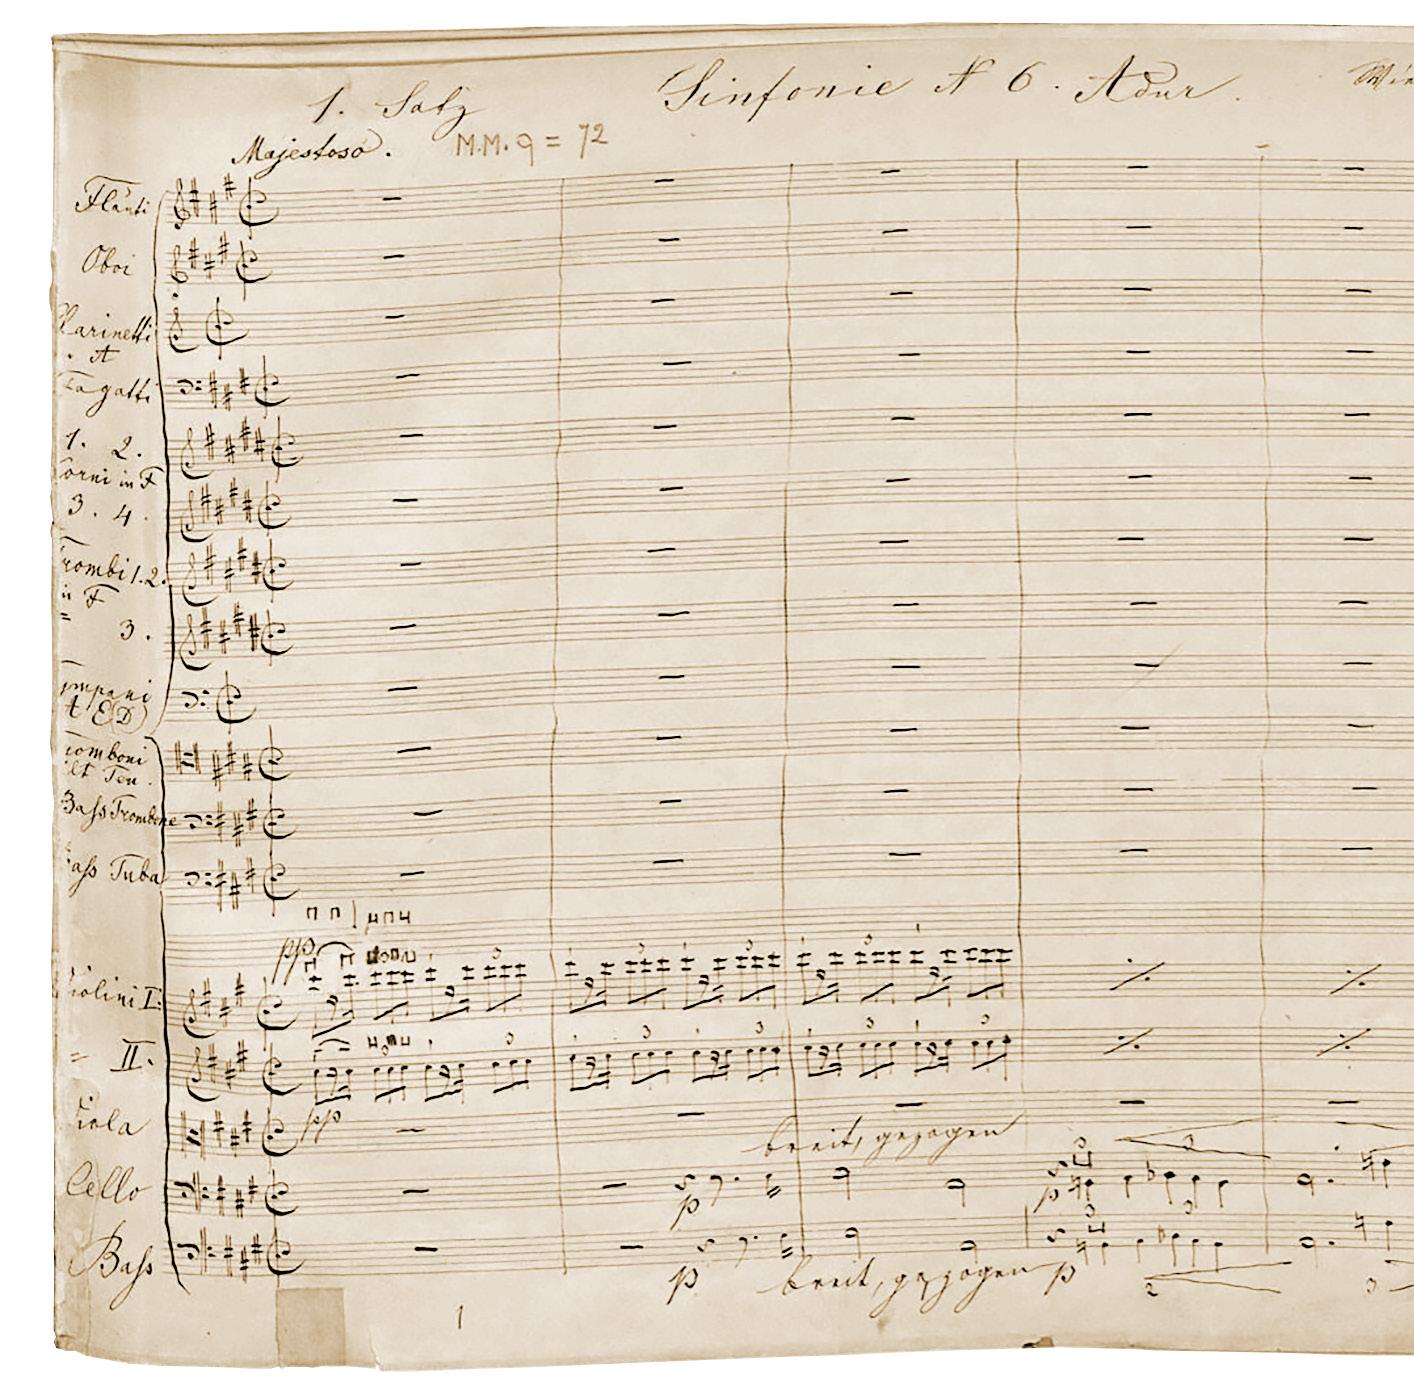 1. Satz Sinfonie N 6. Adur.
Majestoso. M.M. = 72
Flauti
Oboi
Clarinetti
A
Fagotti
1. 2.
Corni in F
3. 4.
Trombi 1. 2.
in F
= 3.
Timpani
A E (D)
Tromboni
Alt Ten.
Bass Trombone
Bass Tuba
pp
Violini I.
3 3 3 3 3
= II.
3 3 3 3 3
pp
Viola
breit, gezogen
Cello
p p
3
Bass
3 3
p breit, gezogen p
1